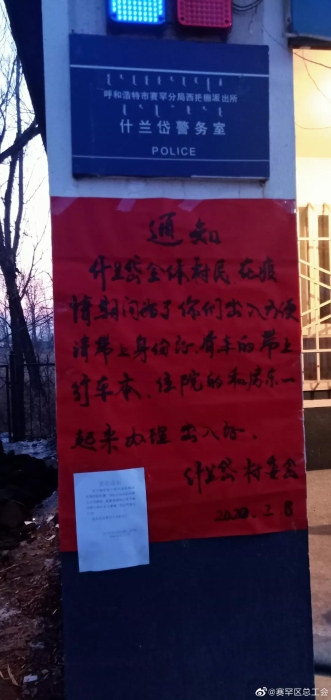 呼和浩特市赛罕分局西把栅派出所
什兰岱警务室
POLICE
通知
什兰岱全体村民在疫
情期间为了你们出入方便
请带上身份证.有车的带上
行车本.住院的和房东一
起来办理出入证.
什兰岱村委会
2020.2.8
@赛罕区总工会